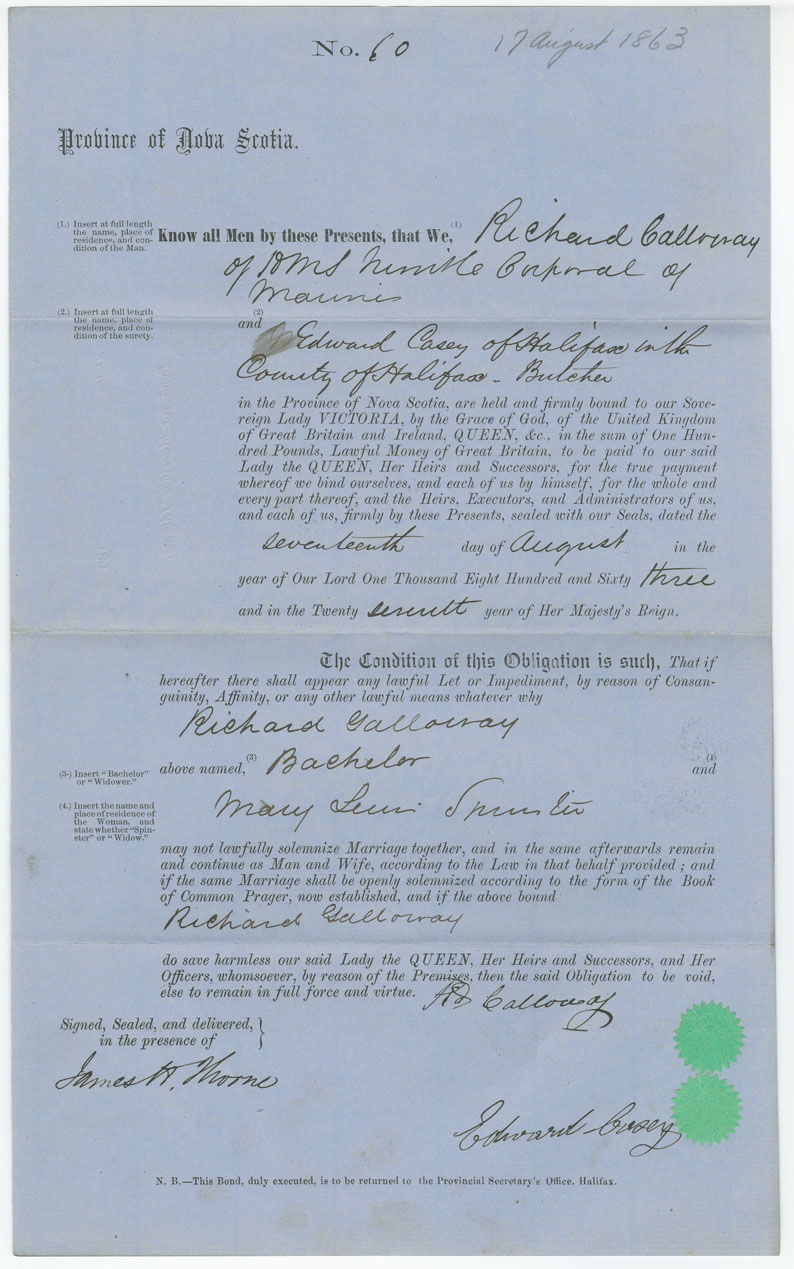 No. 60
17 August 1863
Province of Nova Scotia.
(1.) Insert at full length
the name, place of
residence, and con-
dition of the Man.
Know all Men by these Presents, that We, (1) Richard Calloway
of HMS Nimble Corporal of
Marines
(2.) Insert at full length
the name, place of
residence, and con-
dition of the surety.
(2)
and
Edward Casey of Halifax in the
County of Halifax - Butcher
in the Province of Nova Scotia, are held and firmly bound to our Sove-
reign Lady VICTORIA, by the Grace of God, of the United Kingdom
of Great Britain and Ireland, QUEEN, &c., in the sum of One Hun-
dred Pounds, Lawful Money of Great Britain, to be paid to our said
Lady the QUEEN, Her Heirs and Successors, for the true payment
whereof we bind ourselves, and each of us by himself, for the whole and
every part thereof, and the Heirs, Executors, and Administrators of us,
and each of us, firmly by these Presents, sealed with our Seals, dated the
seventeenth day of August in the
year of Our Lord One Thousand Eight Hundred and Sixty three
and in the Twenty seventh year of Her Majesty's Reign.
The Condition of this Obligation is such, That if
hereafter there shall appear any lawful Let or Impediment, by reason of Consan-
guinity, Affinity, or any other lawful means whatever why
Richard Galloway
(3.) Insert "Bachelor"
or "Widower."
above named, (3) Bachelor (4) and
(4.) Insert the name and
place of residence of
the Woman, and
state whether "Spin-
ster" or "Widow."
Mary Lewis Spinster
may not lawfully solemnize Marriage together, and in the same afterwards remain
and continue as Man and Wife, according to the Law in that behalf provided; and
if the same Marriage shall be openly solemnized according to the form of the Book
of Common Prager, now established, and if the above bound
Richard Galloway
do save harmless our said Lady the QUEEN, Her Heirs and Successors, and Her
Officers, whomsoever, by reason of the Premises, then the said Obligation to be void,
else to remain in full force and virtue.
Rd Calloway
Signed, Sealed, and delivered,
in the presence of
James H. Thorne
Edward Casey
N. B.—This Bond, duly executed, is to be returned to the Provincial Secretary's Office, Halifax.